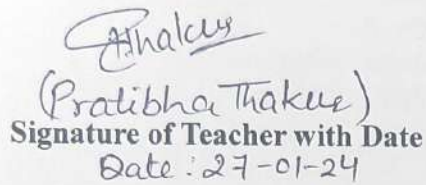 Thakur
(Pratibha Thakur)
Signature of Teacher with Date
Date : 27-01-24